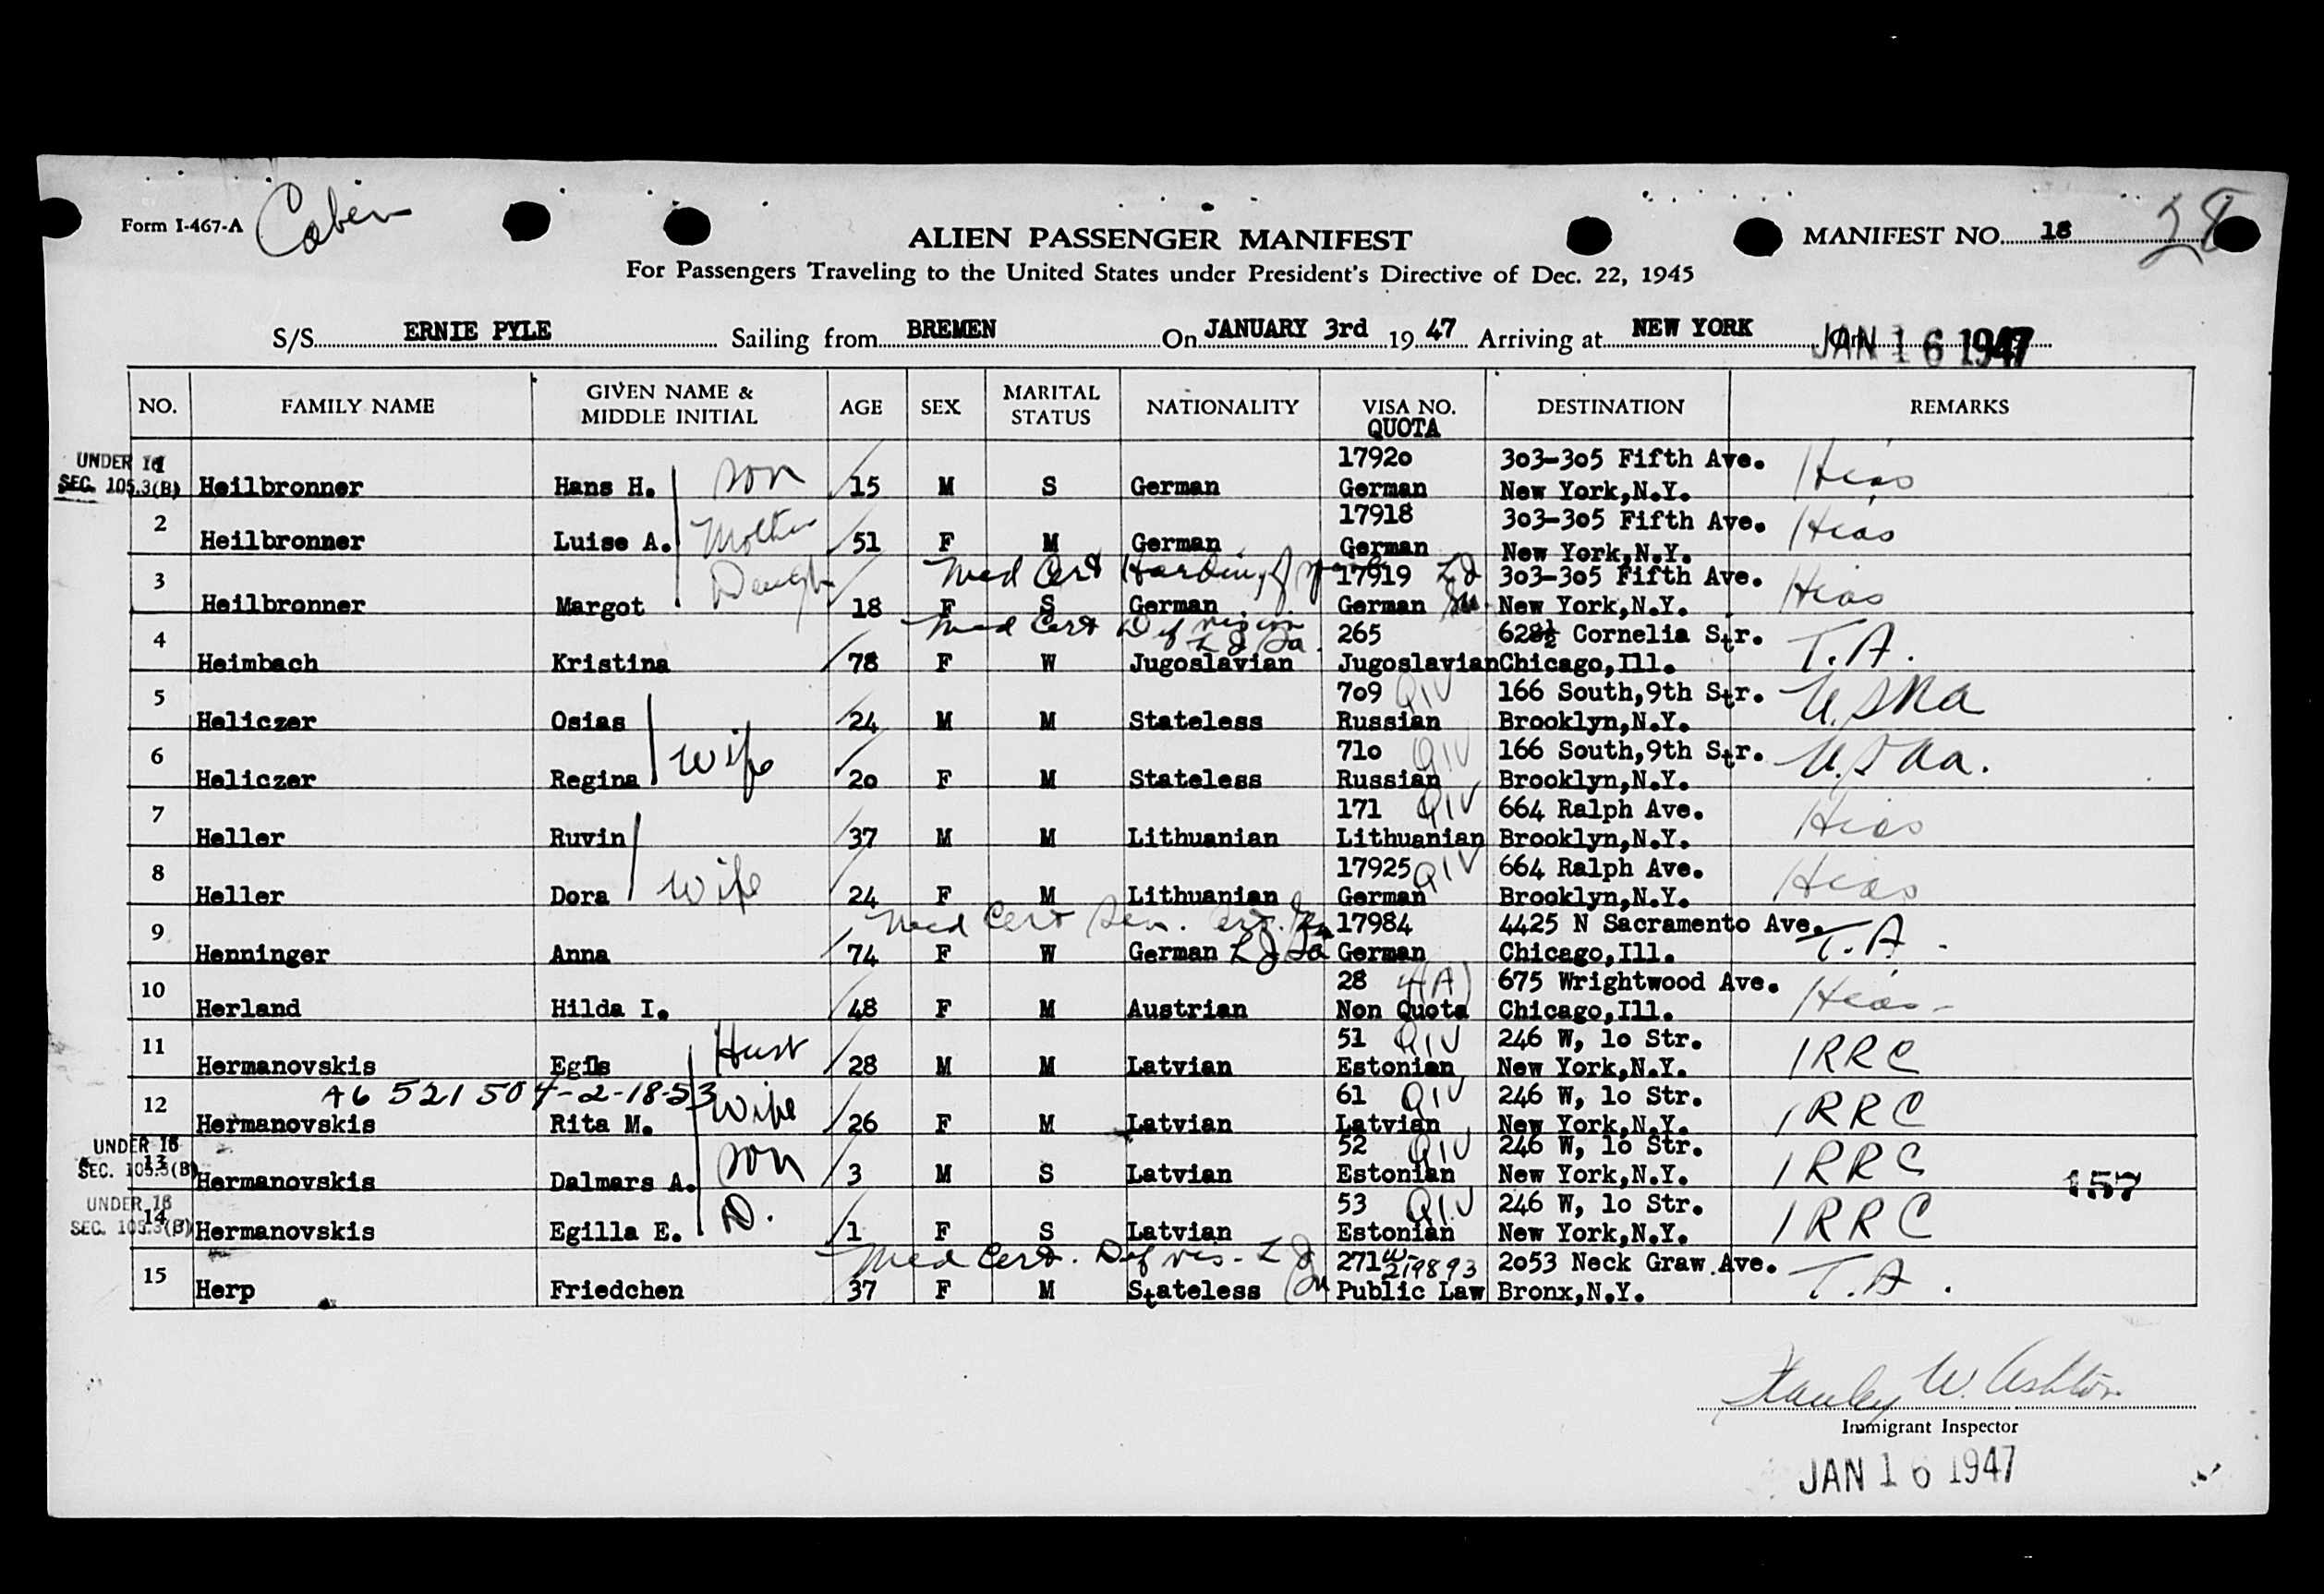 Form I-467-A
Cabin
28
ALIEN PASSENGER MANIFEST
MANIFEST NO. 18
For Passengers Traveling to the United States under President's Directive of Dec. 22, 1945
S/S ERNIE PYLE Sailing from BREMEN On JANUARY 3rd 19 47 Arriving at NEW YORK On JAN 16 1947
NO. FAMILY NAME GIVEN NAME & MIDDLE INITIAL AGE SEX MARITAL STATUS NATIONALITY VISA NO. QUOTA DESTINATION REMARKS
UNDER 16 17920 303-305 Fifth Ave. Hias
SEC. 105.3(B) 1 Heilbronner Hans H. son 15 M S German German New York,N.Y.
2 17918 303-305 Fifth Ave. Hias
Heilbronner Luise A. Mother 51 F M German German New York,N.Y.
3 Daugh Med Cert Hard 17919 303-305 Fifth Ave. Hias
Heilbronner Margot 18 F S German German New York,N.Y.
4 Med Cert Def vision 265 628½ Cornelia Str. T.A.
Heimbach Kristina 78 F W Jugoslavian Jugoslavian Chicago,Ill.
5 709 QIV 166 South,9th Str. USNA
Heliczer Osias 24 M M Stateless Russian Brooklyn,N.Y.
6 wife 710 QIV 166 South,9th Str. USNA
Heliczer Regina 20 F M Stateless Russian Brooklyn,N.Y.
7 171 QIV 664 Ralph Ave. Hias
Heller Ruvin 37 M M Lithuanian Lithuanian Brooklyn,N.Y.
8 wife 17925 QIV 664 Ralph Ave. Hias
Heller Dora 24 F M Lithuanian German Brooklyn,N.Y.
9 Med Cert Sen. 17984 4425 N Sacramento Ave. T.A.
Henninger Anna 74 F W German German Chicago,Ill.
10 28 4(A) 675 Wrightwood Ave. Hias
Herland Hilda I. 48 F M Austrian Non Quota Chicago,Ill.
11 Husb 51 QIV 246 W, 10 Str. IRRC
Hermanovskis Egils 28 M M Latvian Estonian New York,N.Y.
A6 521 504-2-18-53
12 wife 61 QIV 246 W, 10 Str. IRRC
Hermanovskis Rita M. 26 F M Latvian Latvian New York,N.Y.
UNDER 16 52 QIV 246 W, 10 Str. IRRC
SEC. 105.3(B) 13 Hermanovskis Dalmars A. son 3 M S Latvian Estonian New York,N.Y. 157
UNDER 16 53 QIV 246 W, 10 Str. IRRC
SEC. 105.3(B) 14 Hermanovskis Egilla E. D. 1 F S Latvian Estonian New York,N.Y.
15 Med Cert. Def vis. 271 W-219893 2053 Neck Graw Ave. T.A.
Herp Friedchen 37 F M Stateless Public Law Bronx,N.Y.
Stanley W. Ashton
Immigrant Inspector
JAN 16 1947